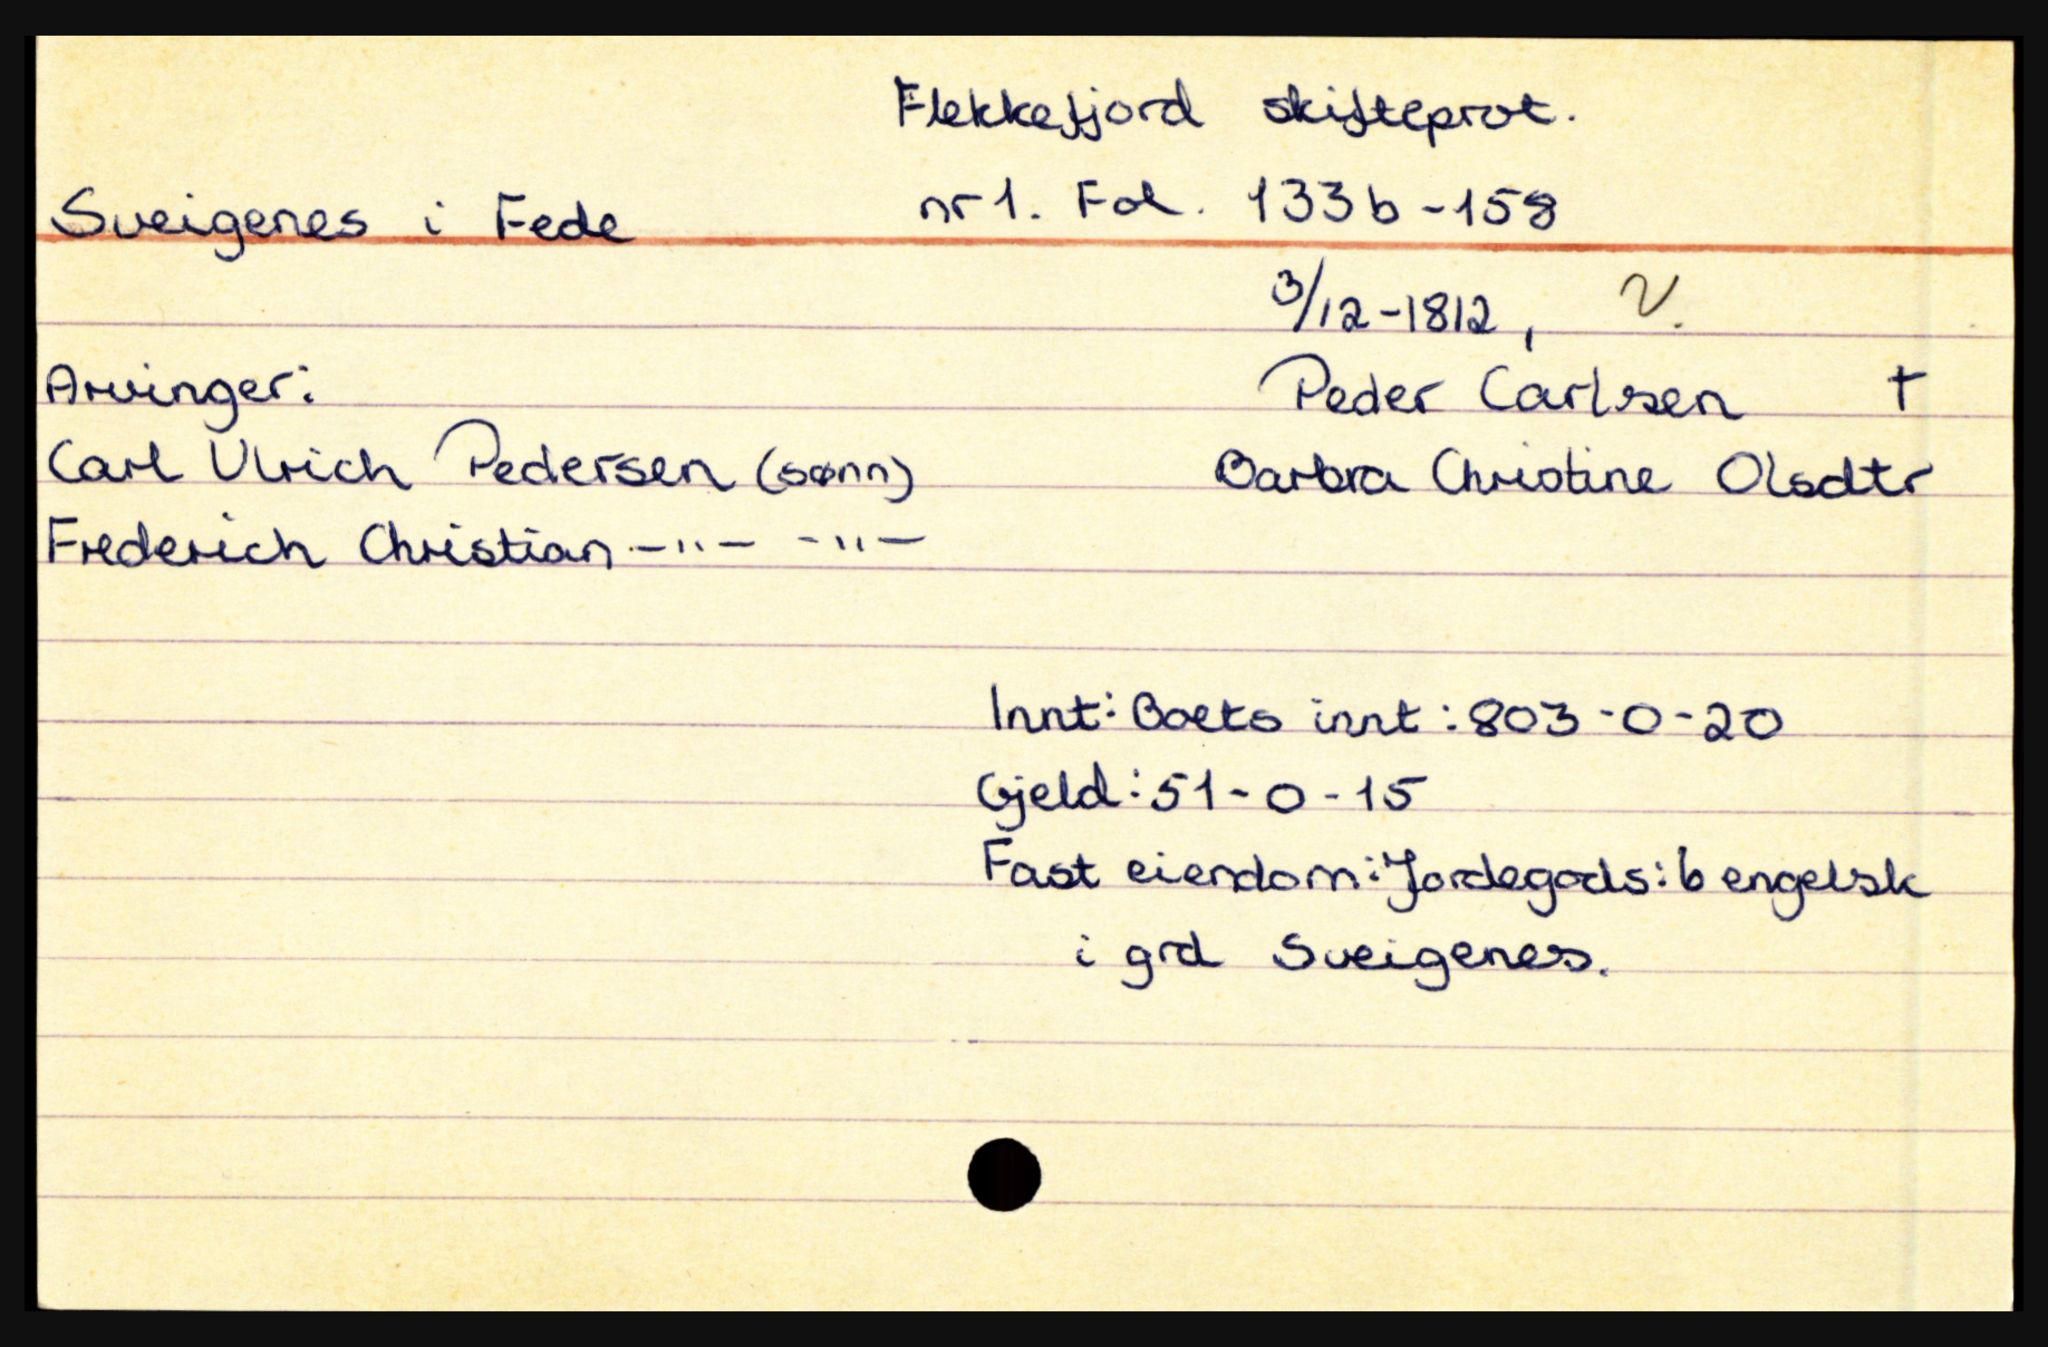 Flekkefjord skifteprot.
Sveigenes i Fede nr 1. Fol. 133b - 158
3/12 - 1812, V.
Arvinger: Peder Carlsen †
Carl Ulrich Pedersen (sønn) Barbra Christine Olsdtr
Frederich Christian -"- -"-
Innt: Boets innt: 803 - 0 - 20
Gjeld: 51 - 0 - 15
Fast eiendom: Jordegods: 6 engelsk
i grd Sveigenes.